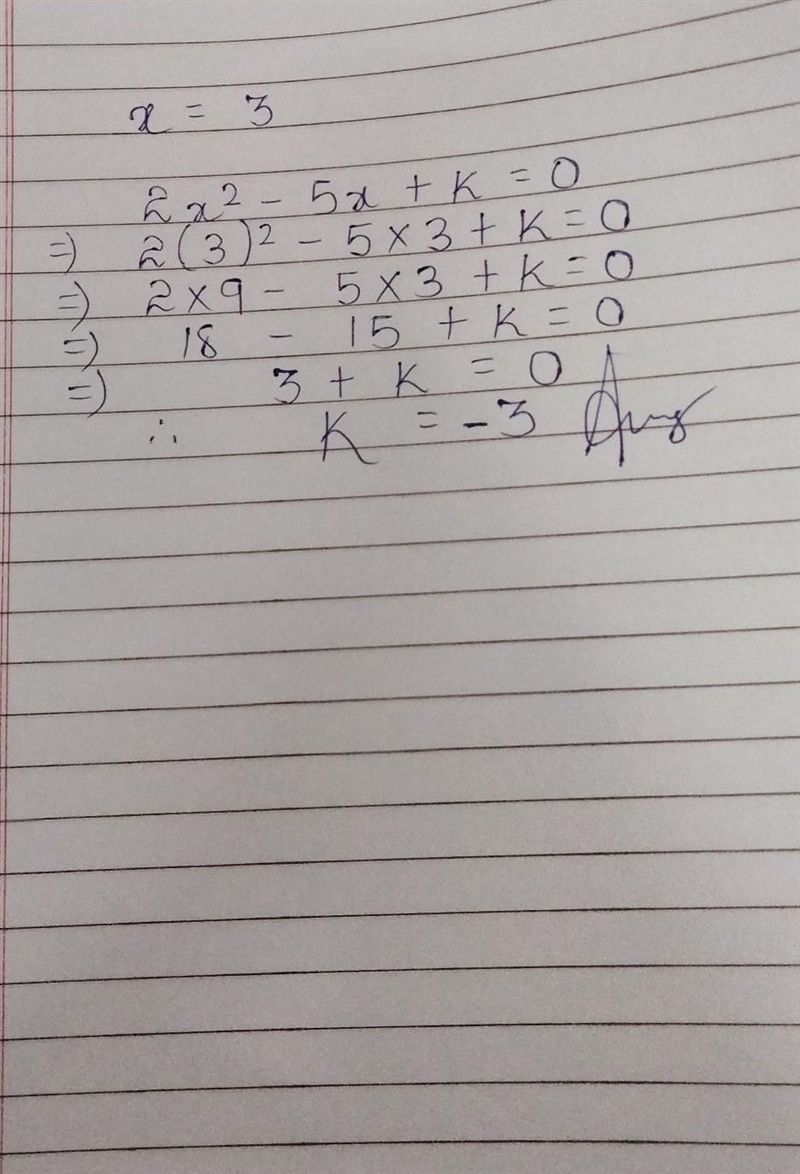 x = 3
2x² - 5x + K = 0
=) 2(3)² - 5 × 3 + K = 0
=) 2 × 9 - 5 × 3 + K = 0
=) 18 - 15 + K = 0
=) 3 + K = 0
∴ K = -3 Ans